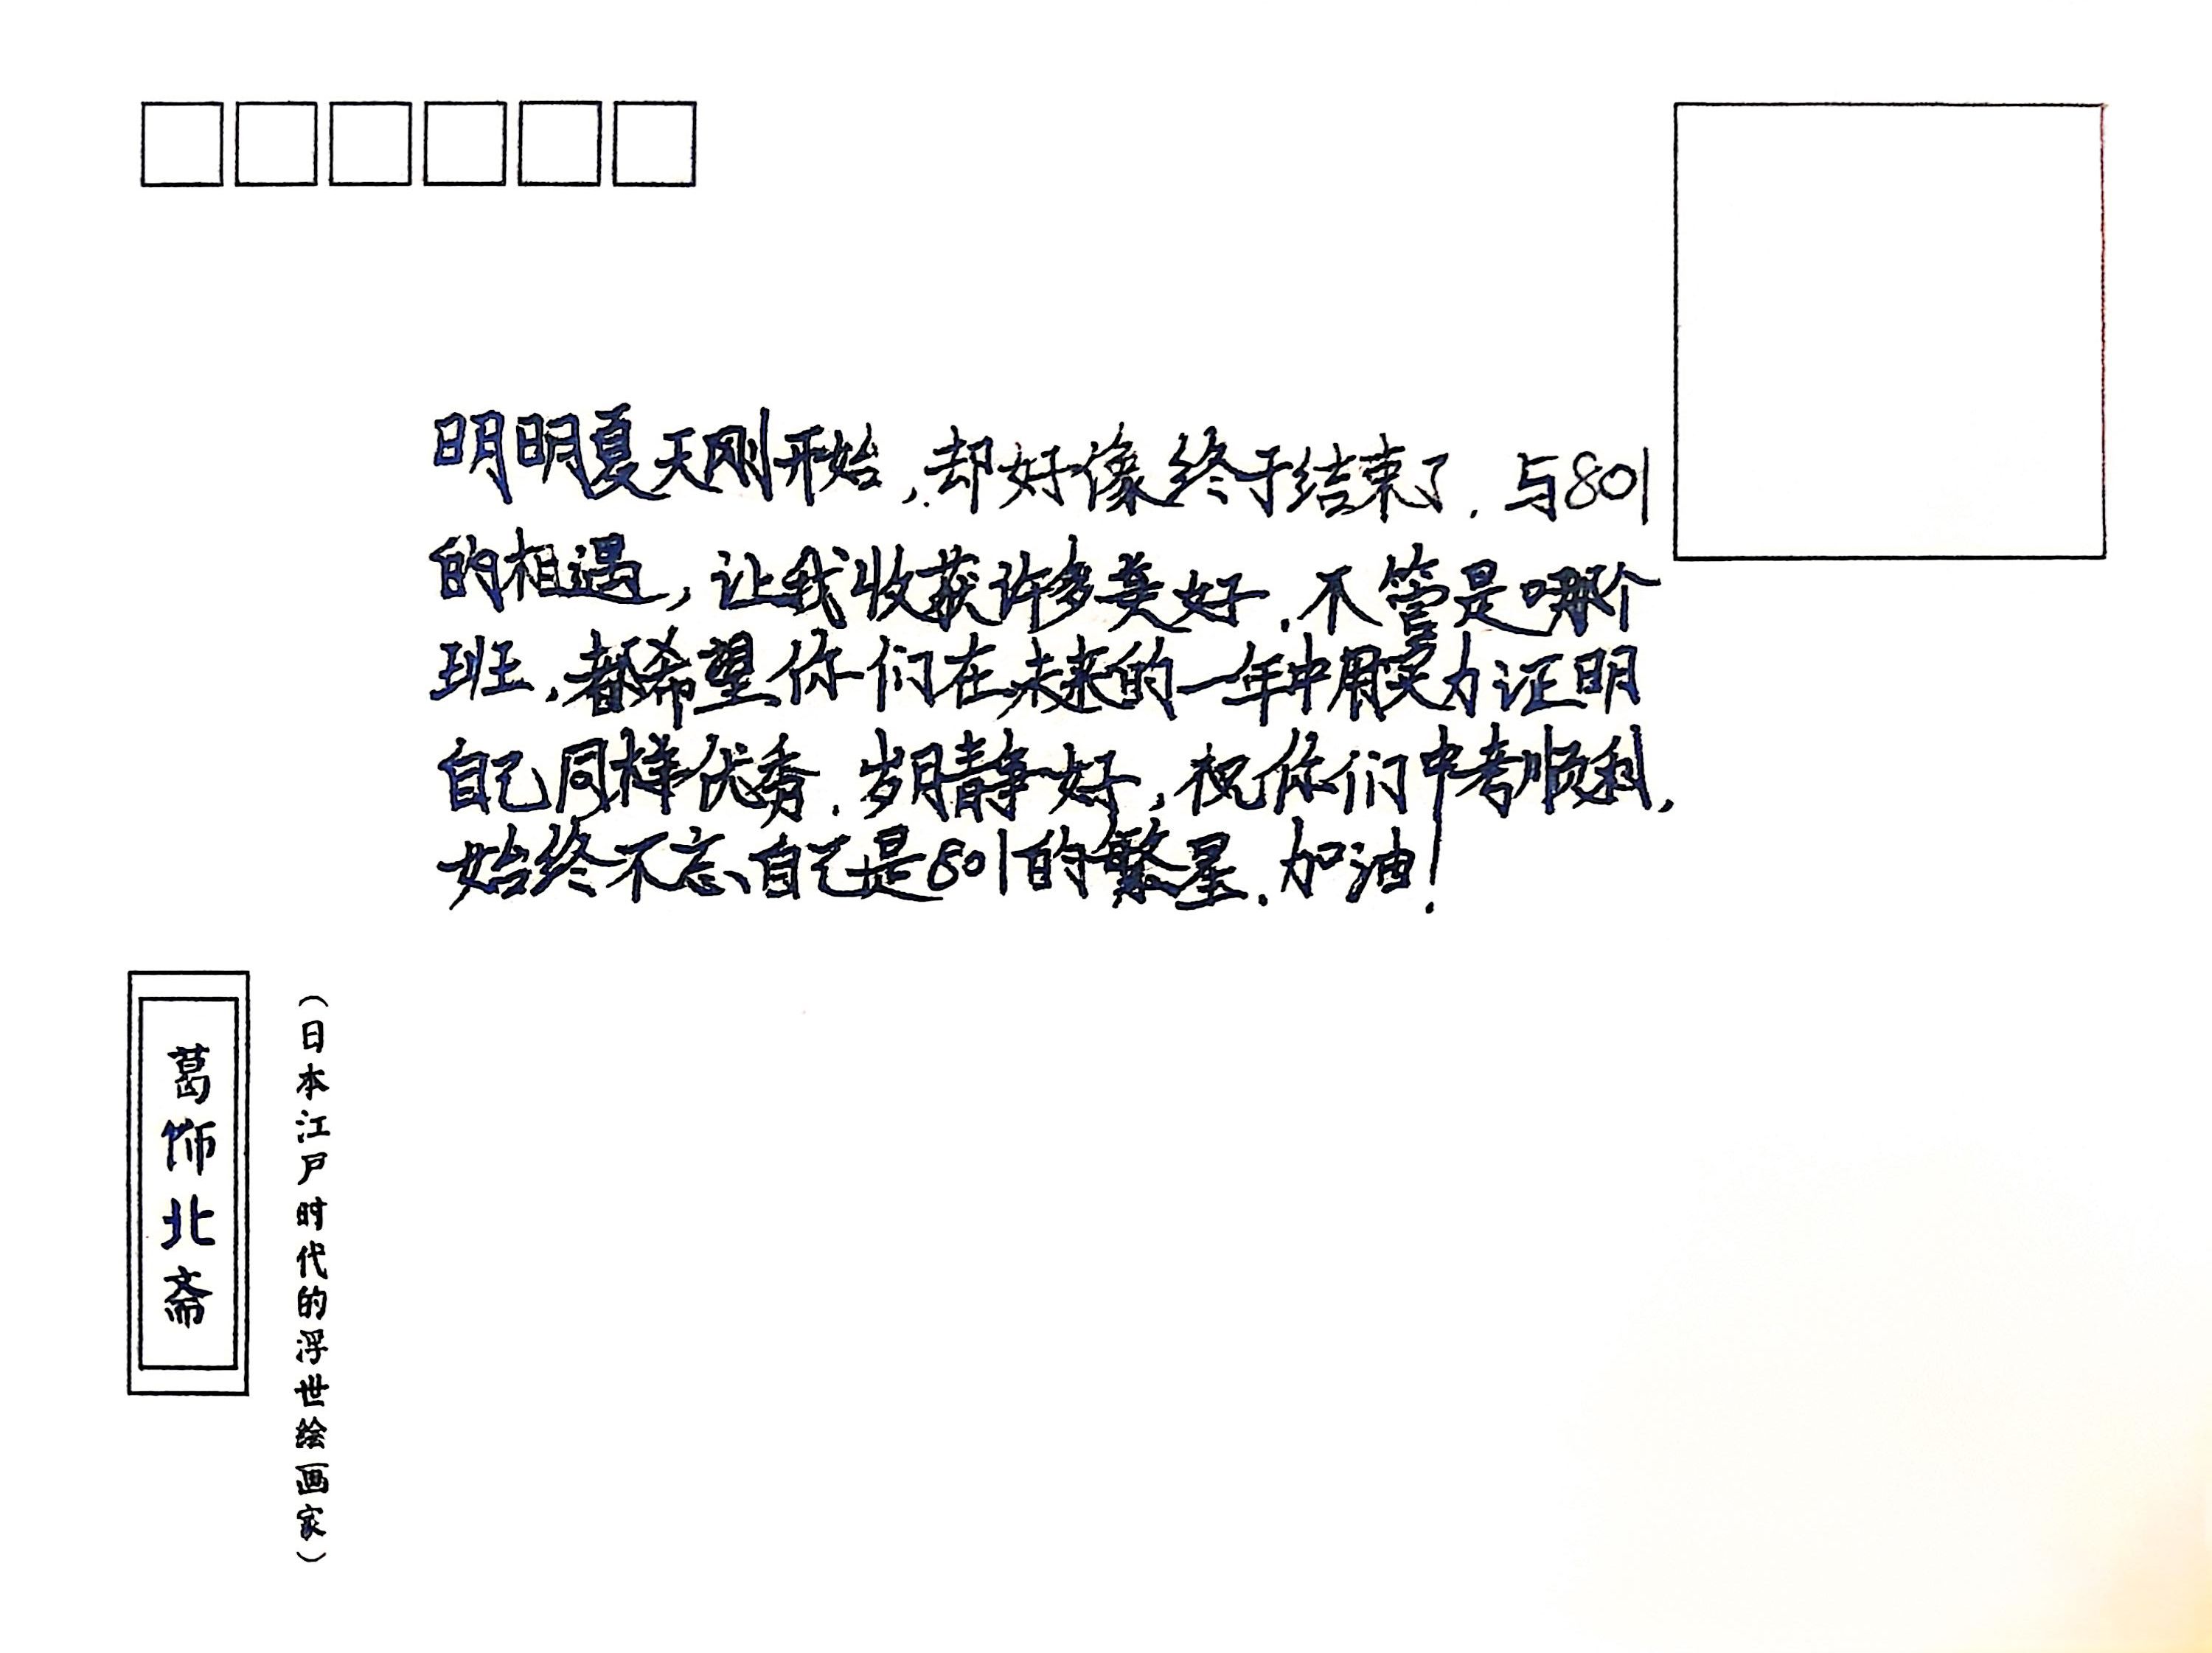 明明夏天刚开始,却好像终于结束了.与801
的相遇,让我收获许多美好.不管是哪个
班,都希望你们在未来的一年中用实力证明
自己同样优秀.岁月静好,祝你们中考顺利,
始终不忘自己是801的繁星.加油!
葛饰北斋
(日本江戸时代的浮世绘画家)